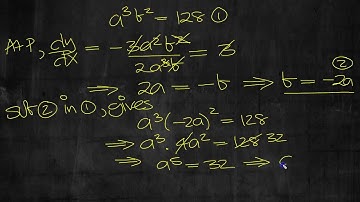 a³b² = 128 ①
At P, dy/dx = -3a²b²/2a³b = 3
⇒ 2a = -b ⇒ b = -2a ②
sub ② in ①, gives
a³(-2a)² = 128
⇒ a³·4a² = 128 32
⇒ a⁵ = 32 ⇒